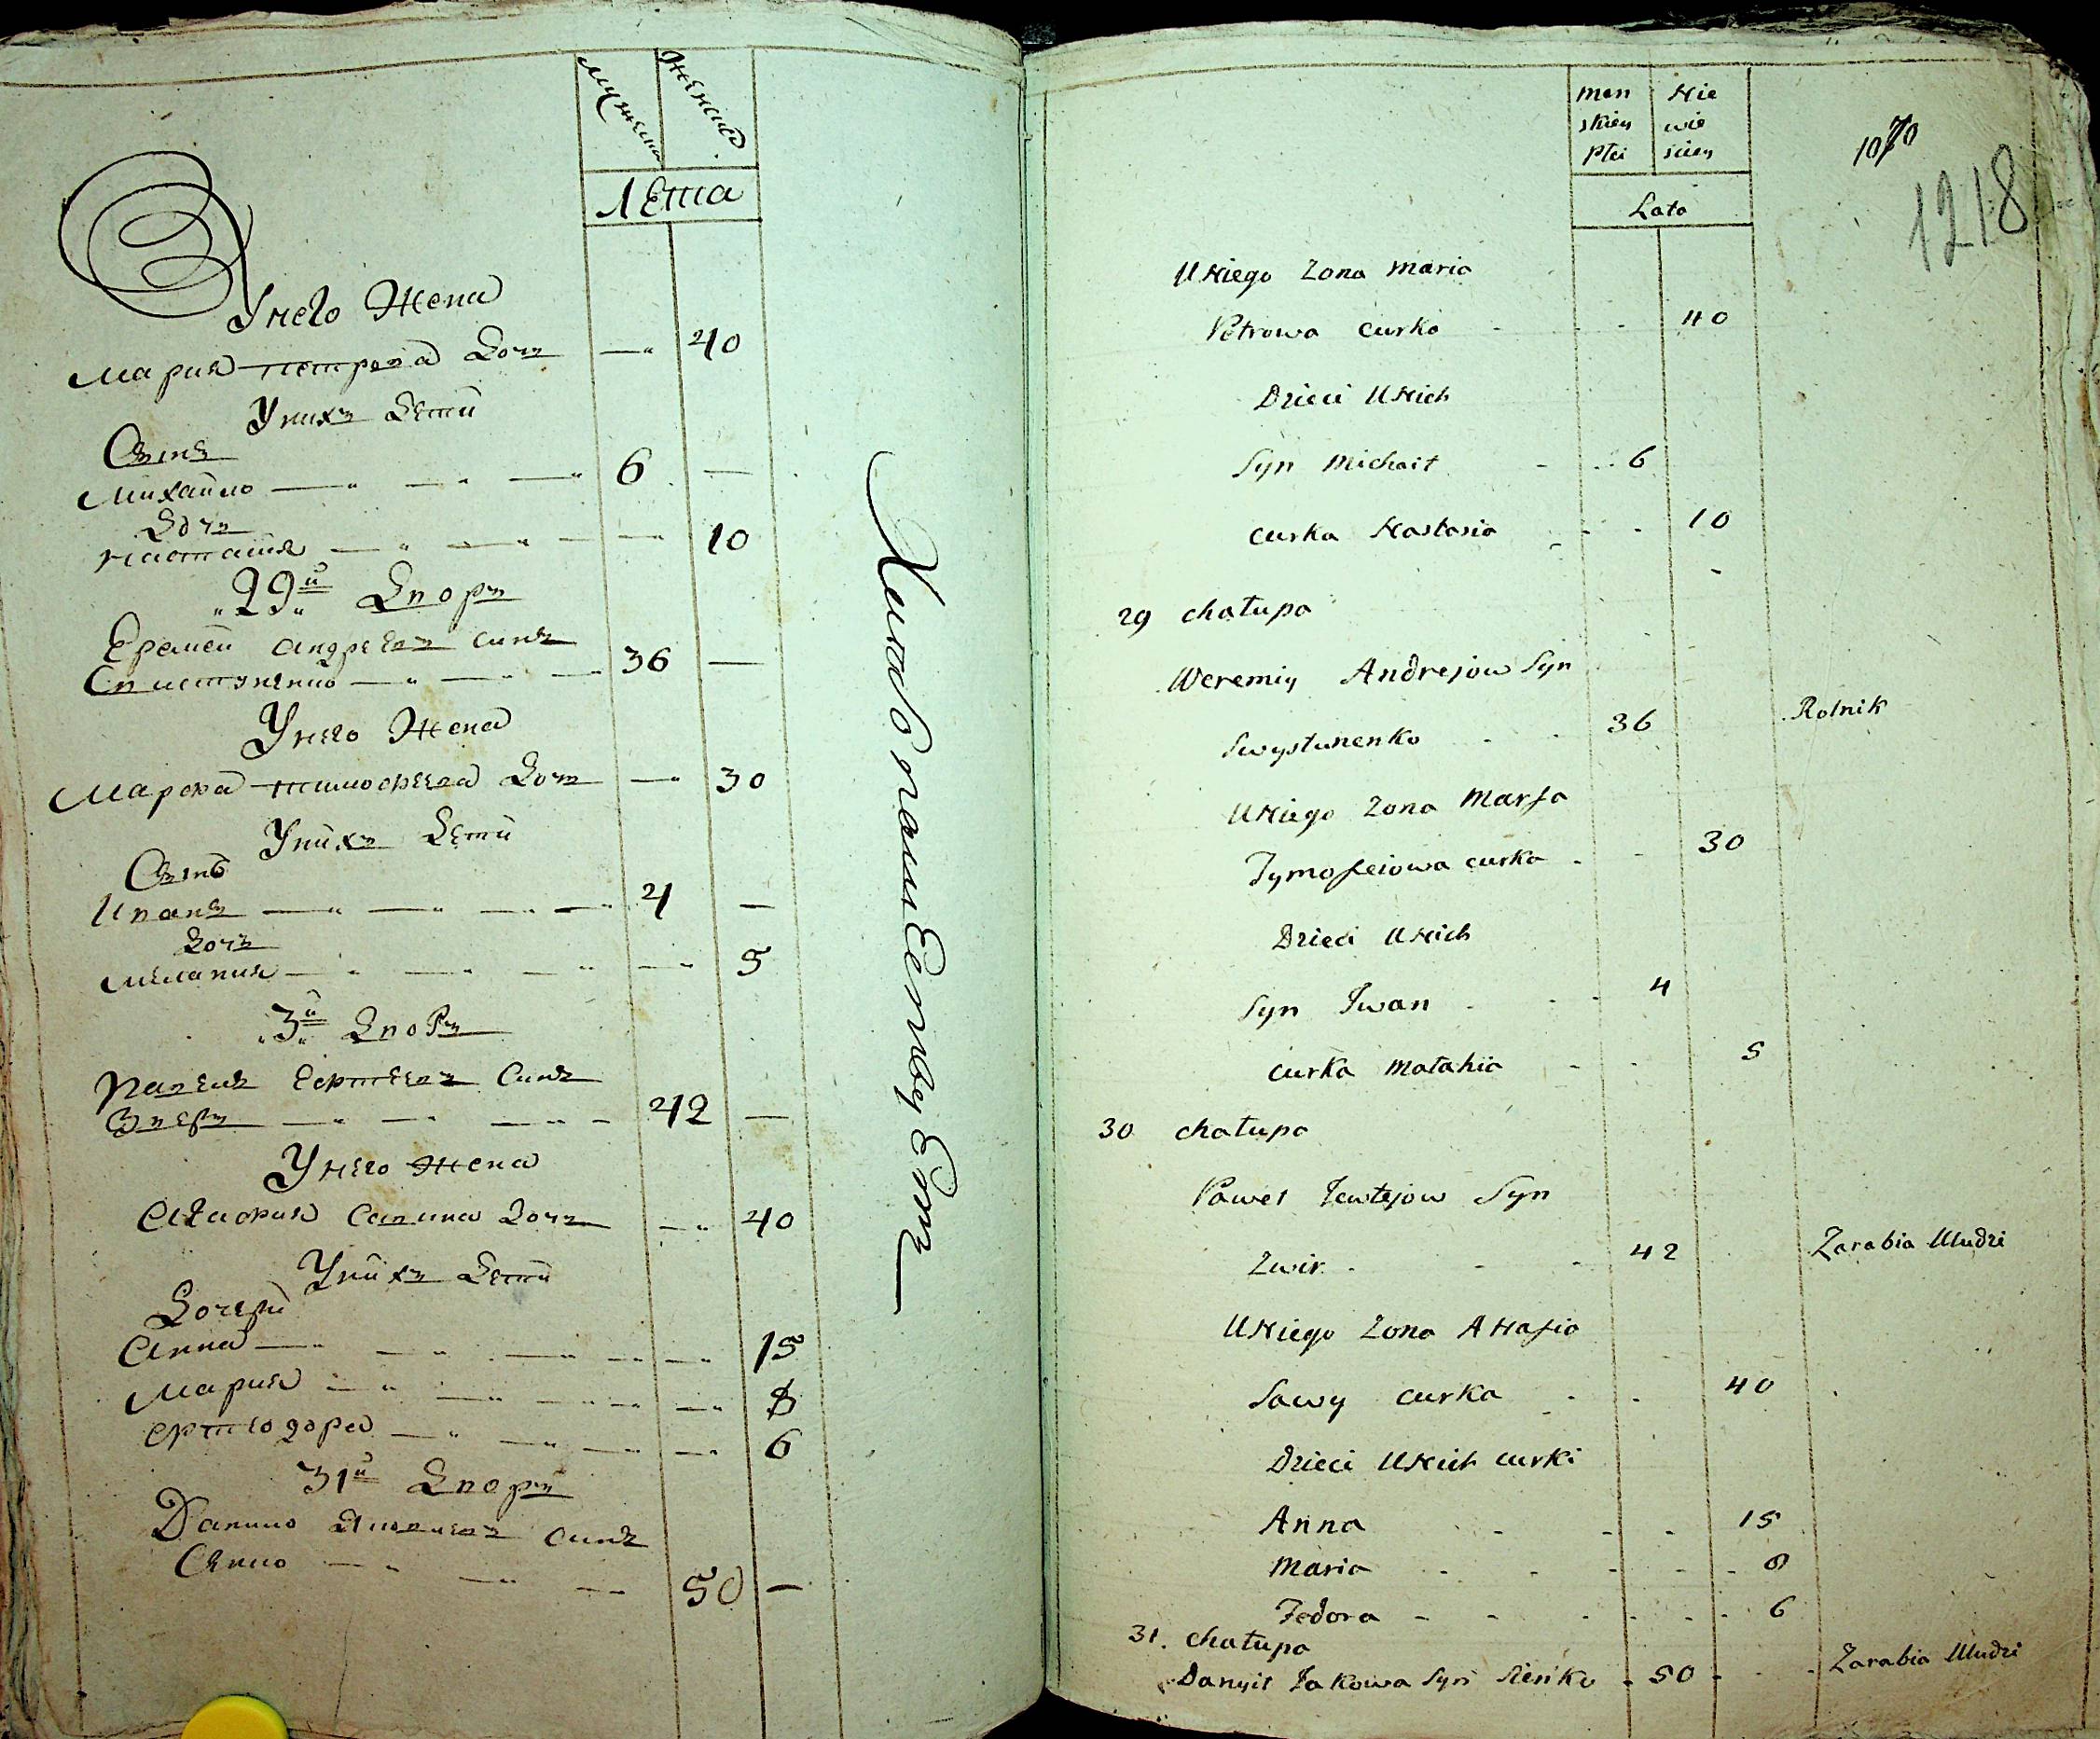 Мужеска
Женска
Лета
Унего Жена
Мария Петрова дочъ — 40
Унихъ дети
Сынъ
Михайло — 6 —
Дочъ
Настасия — 10
29й Дворъ
Еремей Андреевъ синъ
Свистуненко — 36 —
Унего Жена
Марфа Тимофеева дочъ — 30
Унихъ дети
Сынъ
Иванъ — 4 —
Дочъ
Мелания — 5
3й Дворъ
Павелъ Евтеевъ синъ
Зверъ — 42 —
Унего Жена
Агафия Савина дочъ — 40
Унихъ дети
Дочери
Анна — 15
Мария — 8
Федора — 6
31й Дворъ
Данило Яковлевъ синъ
Сенко — 50 —
men Nie
skiey wie
Płci sciey
Lata
1070
1218
U Niego Zona Maria
Petrowa curka - - - 40
Dzieci U Nich
Syn Michaił - - 6
curka Nastasia - - 10
29 chałupa
Weremiy Andrejow Syn
Swystunenko - - 36 Rolnik
U Niego Zona Marfa
Tymofeiowa curka - - 30
Dzieci U Nich
Syn Iwan - - - 4
curka Małahia - - 5
30 chałupa
Paweł Jewtejow Syn
Zwir - - - 42 Zarabia U ludzi
U Niego Zona Ahafia
Sawy curka - - 40
Dzieci U Nich curki
Anna - - - 15
Maria - - - - - 8
Fedora - - - - - - 6
31. chałupa
Danyił Jakowa Syn Sieńko - 50 - - - Zarabia U ludzi